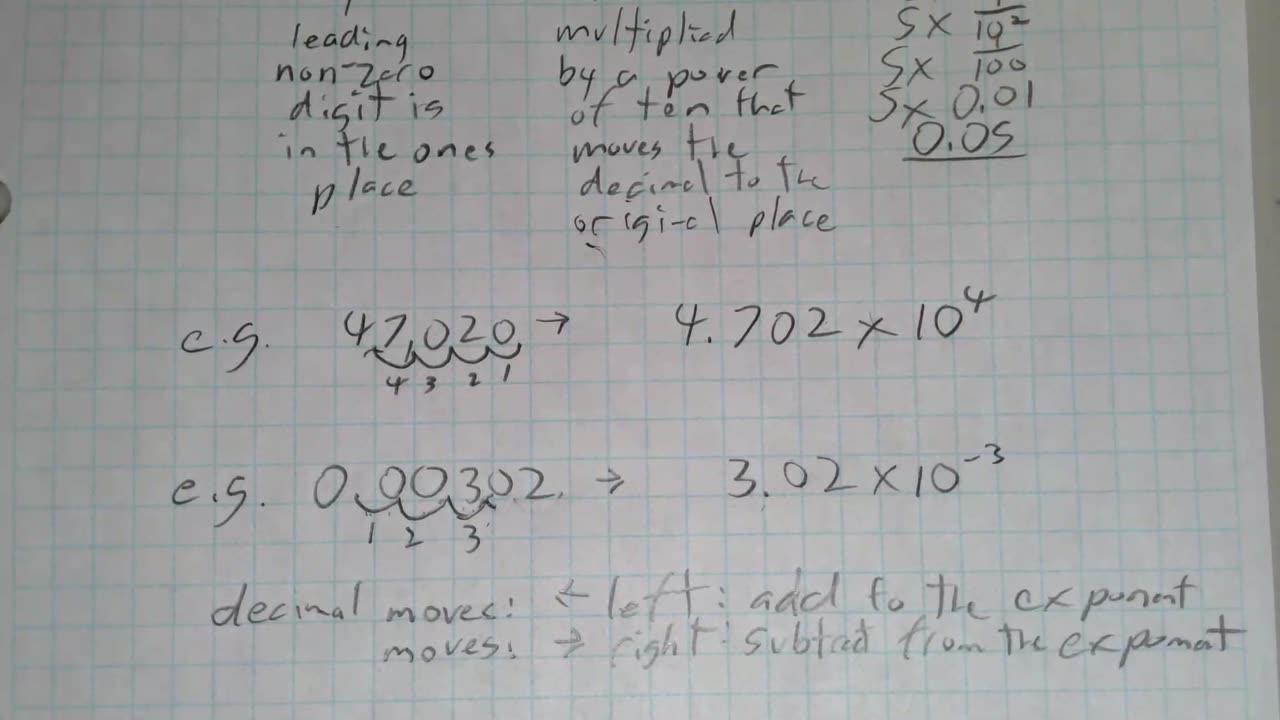 leading
non-zero
digit is
in the ones
place
multiplied
by a power
of ten that
moves the
decimal to the
original place
5 x 1/10²
5 x 1/100
5 x 0.01
0.05
e.g. 47,020 → 4.702 x 10⁴
4 3 2 1
e.g. 0.00302. → 3.02 x 10⁻³
1 2 3
decimal moves: ← left: add to the exponent
moves: → right: subtract from the exponent